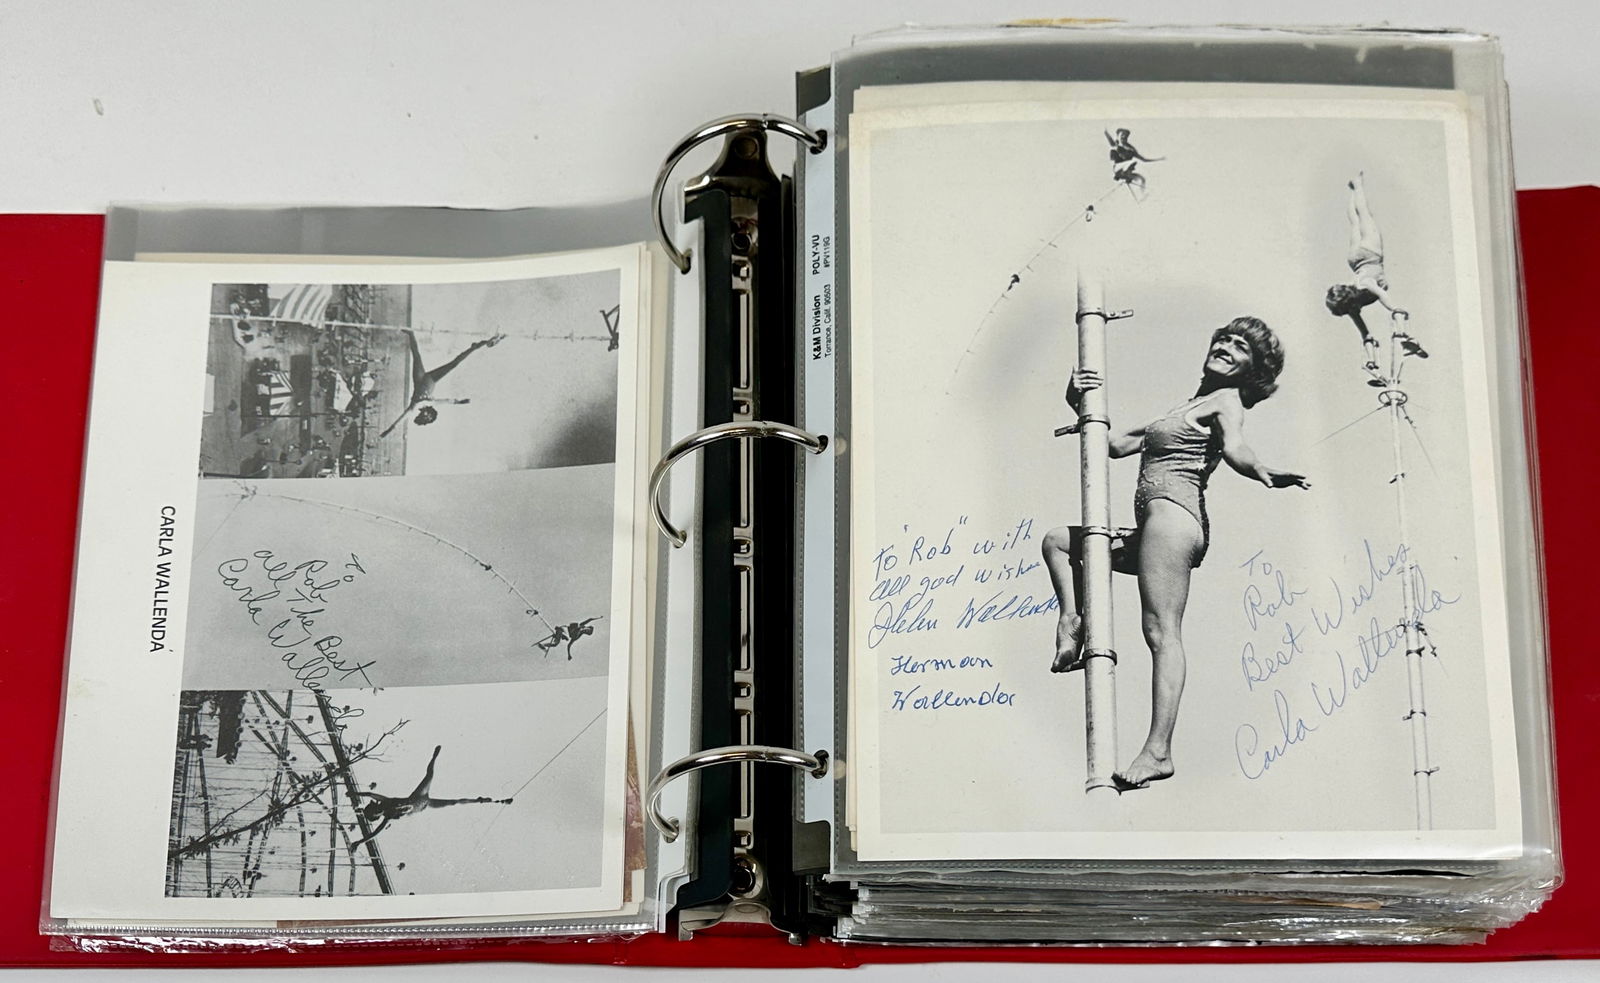 CARLA WALLENDA
To
Rob
all The Best
Carla Wallenda
K&M Division POLY-VU
Torrance, Calif. 90503 #PV119G
To "Rob" with
all god wishes
Helen Wallenda
Herman
Wallenda
To
Rob
Best Wishes
Carla Wallenda